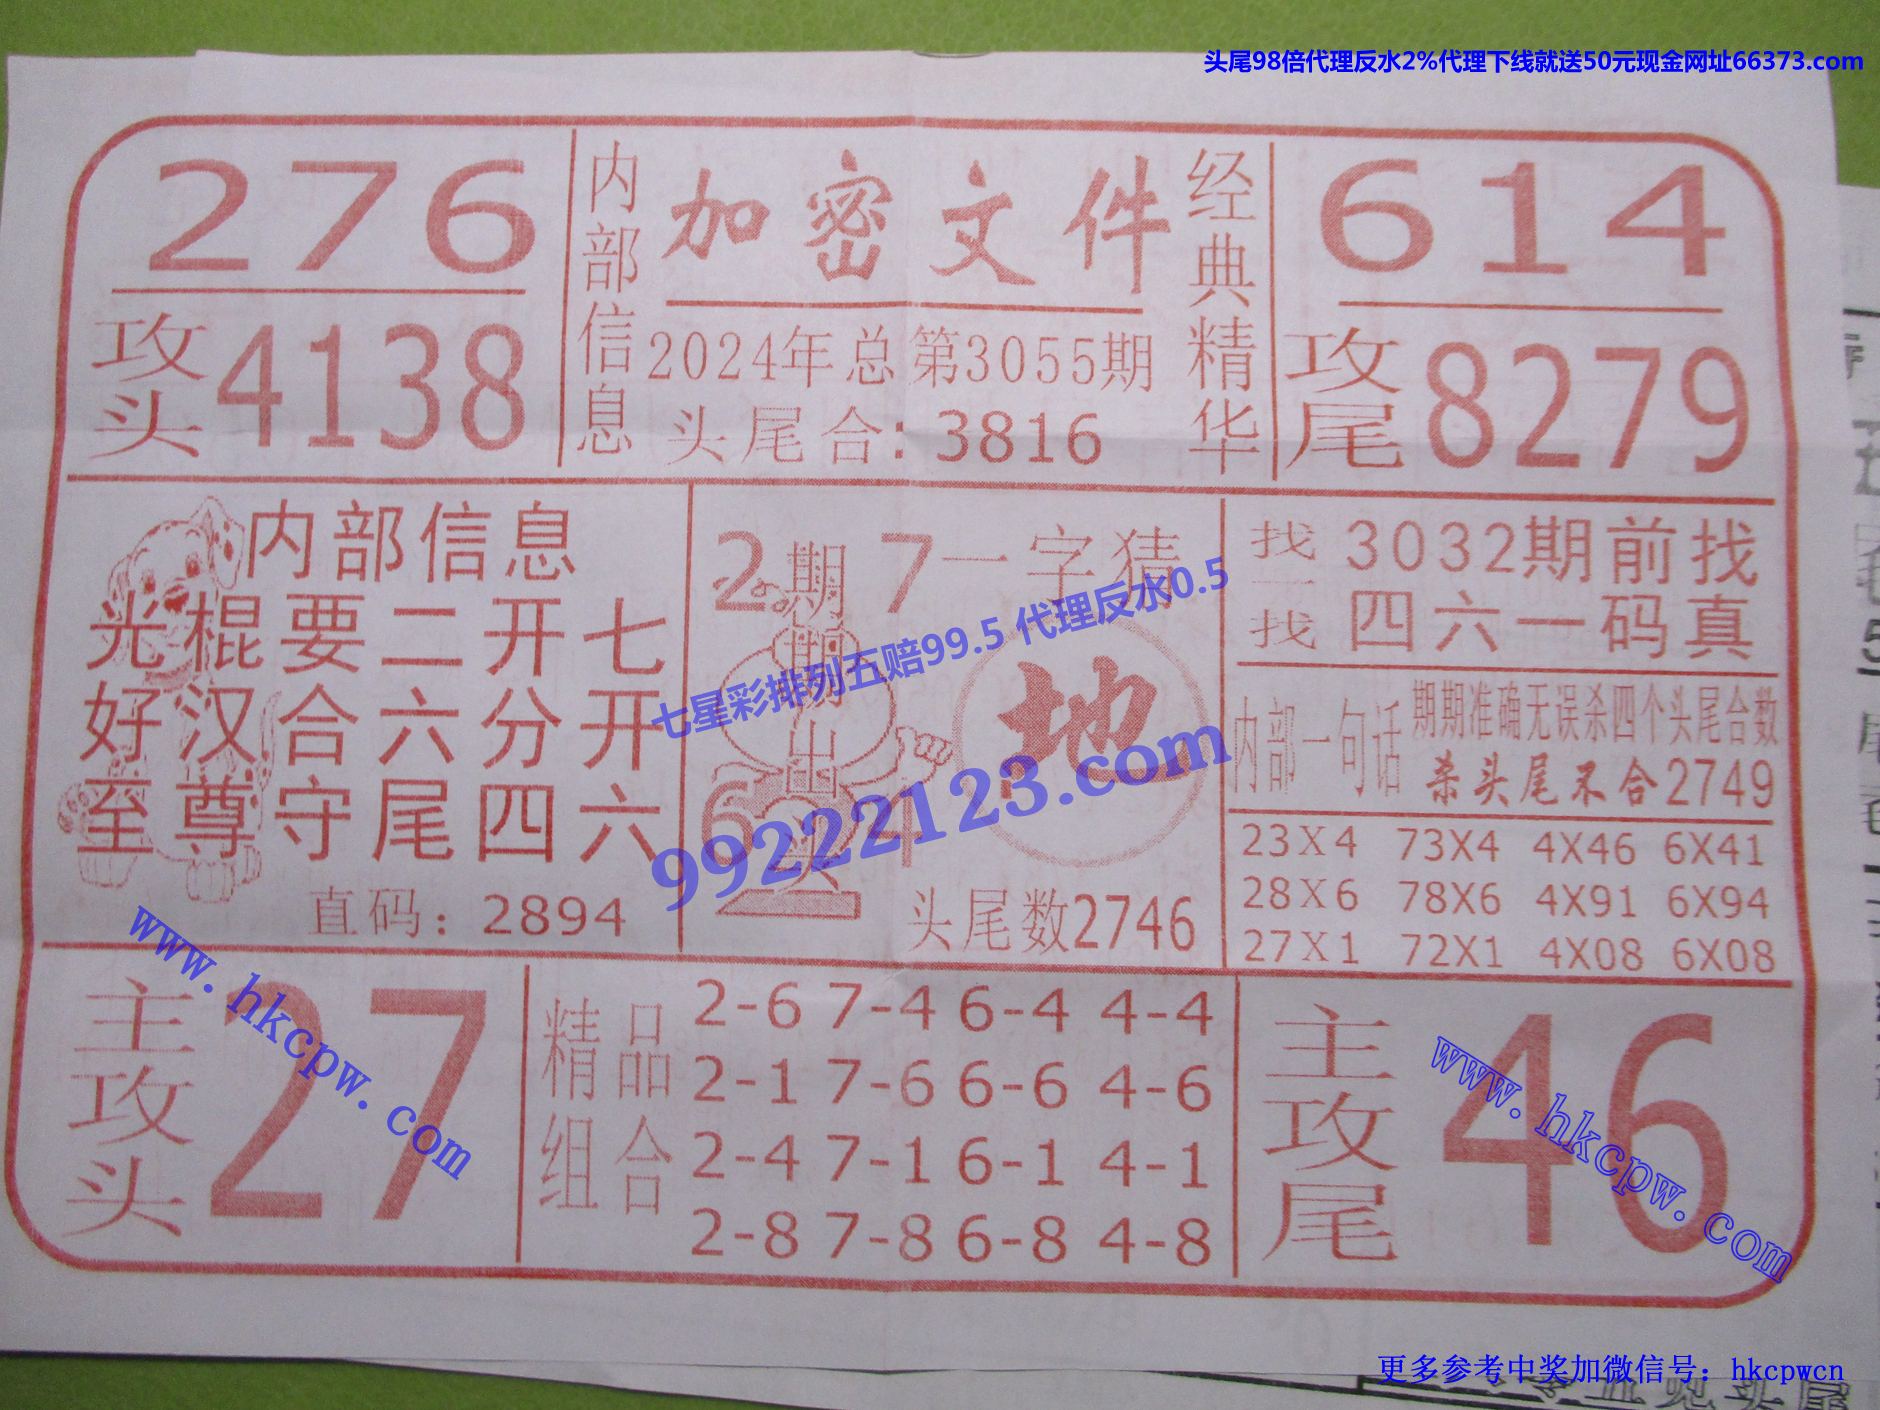 头尾98倍代理反水2%代理下线就送50元现金网址66373.com
276
攻头4138
内部信息
加密文件
2024年总第3055期
头尾合:3816
经典精华
614
攻尾8279
内部信息
光棍要二开七
好汉合六分开
至尊守尾四六
直码:2894
2 7 一字猜
期期出
6 4
头
地
头尾数2746
七星彩排列五赔99.5 代理反水0.5
99222123.com
找一找
3032期前找
四六一码真
内部一句话
期期准确无误杀四个头尾合数
杀头尾不合2749
23X4 73X4 4X46 6X41
28X6 78X6 4X91 6X94
27X1 72X1 4X08 6X08
主攻头
27
www.hkcpw.com
精品组合
2-6 7-4 6-4 4-4
2-1 7-6 6-6 4-6
2-4 7-1 6-1 4-1
2-8 7-8 6-8 4-8
主攻尾
46
www.hkcpw.com
更多参考中奖加微信号：hkcpwcn